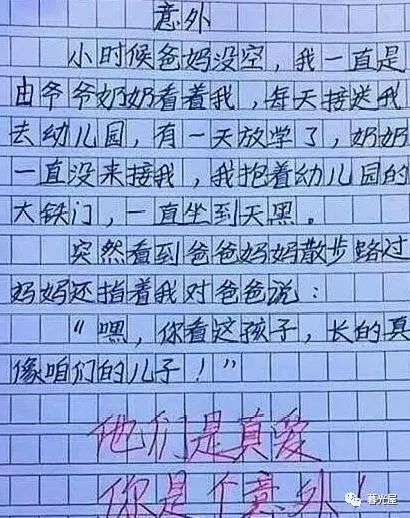 意外
小时候爸妈没空，我一直是
由爷爷奶奶看着我，每天接送我
去幼儿园，有一天放学了，奶奶
一直没来接我，我抱着幼儿园的
大铁门，一直坐到天黑。
突然看到爸爸妈妈散步路过
妈妈还指着我对爸爸说：
“嘿，你看这孩子，长的真
像咱们的儿子！”
他们是真爱
你是个意外！
暮光屋